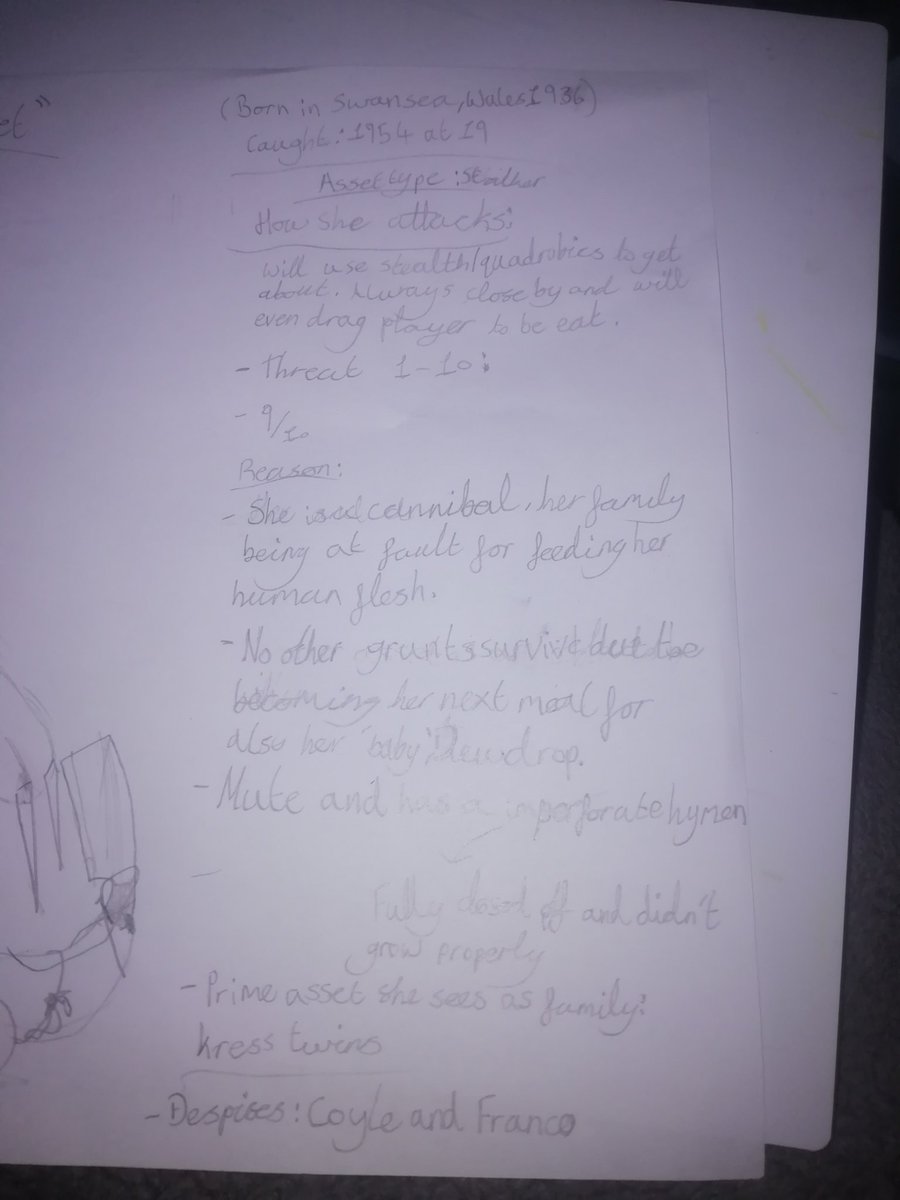 et"
(Born in Swansea, Wales 1936)
Caught: 1954 at 19
Asset type: Stalker
How she attacks:
will use stealth/quadrobics to get
about. Always close by and will
even drag player to be eat.
- Threat 1-10:
- 9/10
Reason:
- She is a cannibal, her family
being at fault for feeding her
human flesh.
- No other grunts survive but be
becoming her next meal for
also her "baby", Dewdrop.
- Mute and has a imperforate hymen
Fully closed off and didn't
grow properly
- Prime asset she sees as family:
kress twins
- Despises: Coyle and Franco